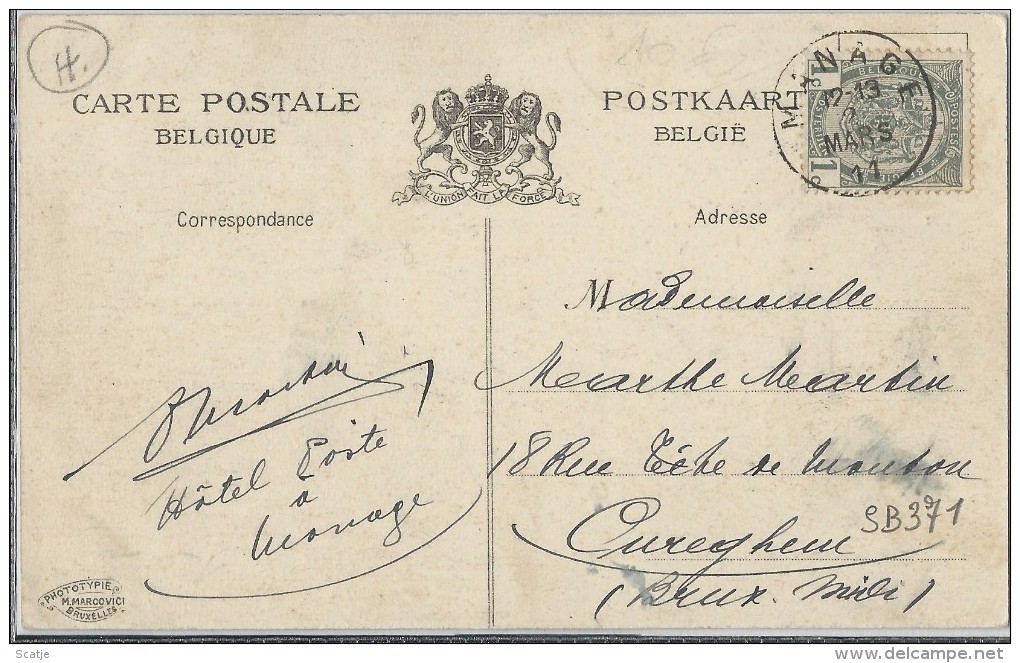 H.
CARTE POSTALE
BELGIQUE
POSTKAART
BELGIË
L'UNION FAIT LA FORCE
MANAGE
12-13
MARS
11
BELGIQUE
POSTES
1
1
BELGIË
Correspondance
Adresse
Mademoiselle
Marthe Martin
18 Rue Tête de Mouton
Cureghem
(Brux. Midi)
SB371
Hôtel Poste
à
Manage
PHOTOTYPIE
M. MARCOVICI
BRUXELLES
Scatje
delcampe.net